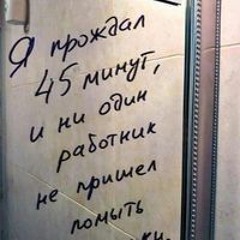 Я прождал
45 минут,
и ни один
работник
не пришел
помыть